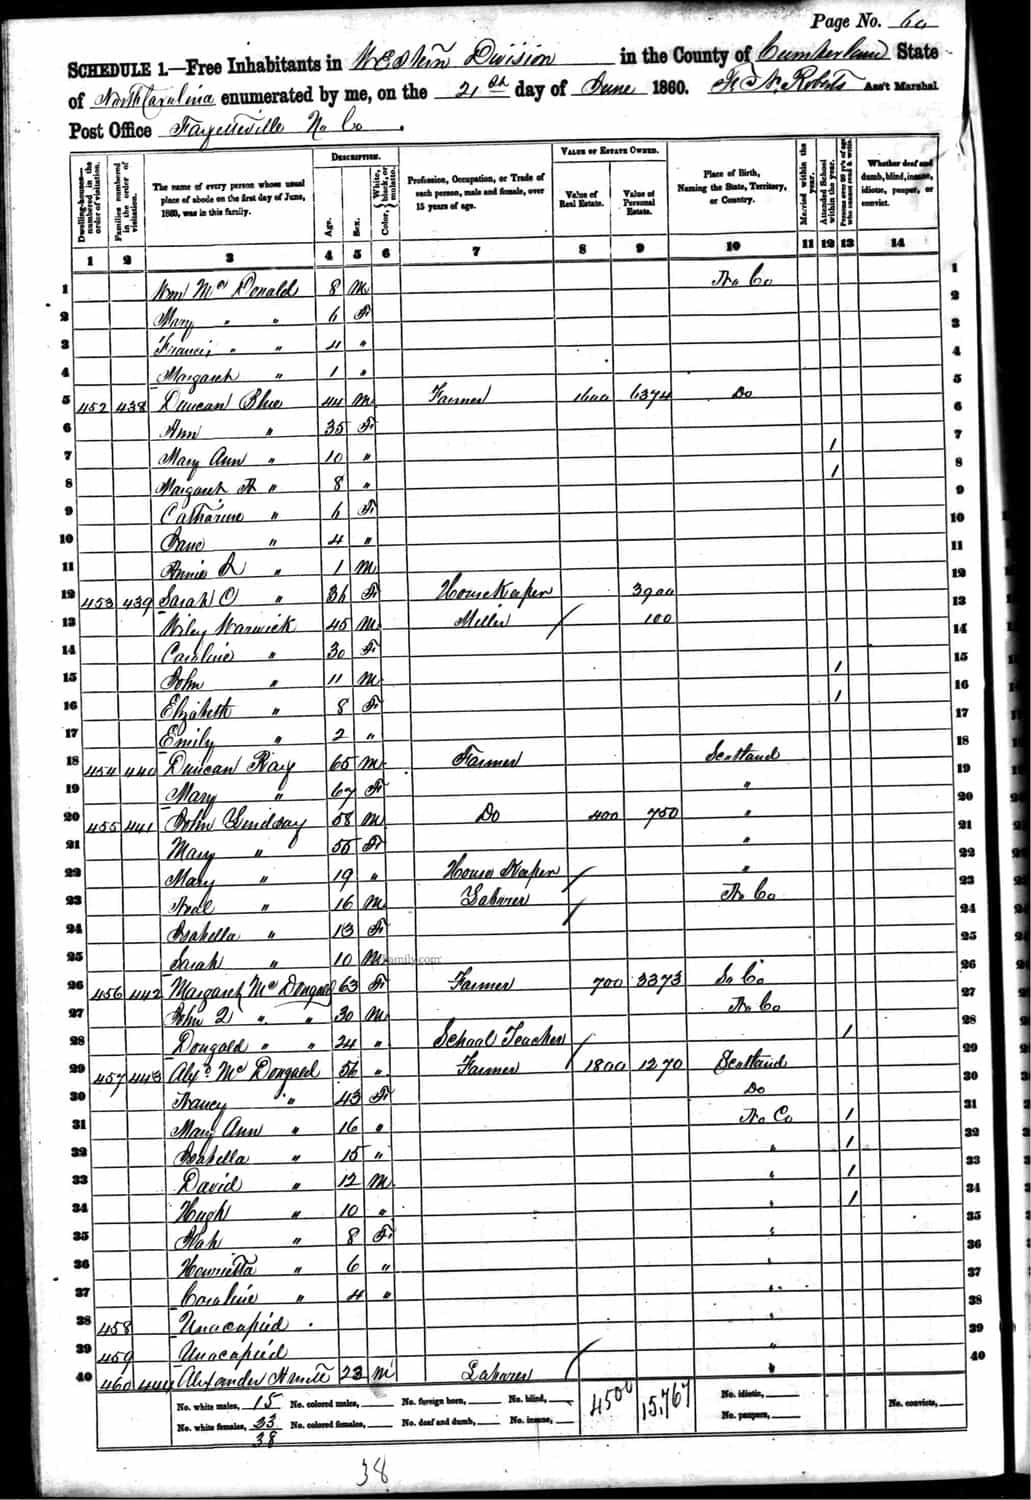 Page No. 60
SCHEDULE 1.—Free Inhabitants in Western Division in the County of Cumberland State
of North Carolina enumerated by me, on the 21st day of June 1860. Roberts Ass't Marshal
Post Office Fayetteville No Co.
Dwelling-houses—numbered in the order of visitation.
Families numbered in the order of visitation.
The name of every person whose usual place of abode on the first day of June, 1860, was in this family.
DESCRIPTION.
Age.
Sex.
Color, White, black, or mulatto.
Profession, Occupation, or Trade of each person, male and female, over 15 years of age.
VALUE OF ESTATE OWNED.
Value of Real Estate.
Value of Personal Estate.
Place of Birth, Naming the State, Territory, or Country.
Married within the year.
Attended School within the year.
Persons over 20 y'rs of age who cannot read & write.
Whether deaf and dumb, blind, insane, idiotic, pauper, or convict.
1 2 3 4 5 6 7 8 9 10 11 12 13 14
1 Wm McDonald 8 M No Co 1
2 Mary " " 6 F 2
3 Francis " " 4 " 3
4 Margaret " 1 " 4
5 452 438 Duncan Blue 44 M Farmer 1600 6374 Do 5
6 Ann " 35 F 6
7 Mary Ann " 10 " 1 7
8 Margaret A " 8 " 1 8
9 Catharine " 6 F 9
10 Jane " 4 " 10
11 Annie " 1 M 11
12 453 439 Sarah C " 36 F House Keeper 3900 12
13 Wiley Warwick 45 M Miller / 100 13
14 Caroline " 30 F 14
15 John " 11 M 1 15
16 Elizabeth " 8 F 1 16
17 Emily " 2 " 17
18 454 440 Duncan Ray 65 M Farmer Scotland 18
19 Mary " 67 F " 19
20 455 441 John Lindsay 58 M Do 400 750 " 20
21 Mary " 55 F " 21
22 Mary " 19 " House Keeper / " 22
23 Neal " 16 M Laborer / No Co 23
24 Isabella " 13 F 24
25 Sarah " 10 M 25
family.com
26 456 442 Margaret McDougald 63 F Farmer 700 3373 So Co 26
27 John " " 30 M No Co 27
28 Dougald " " 24 " School Teacher / 1 28
29 457 443 Alexr McDougald 56 " Farmer 1800 1270 Scotland 29
30 Nancy " 43 F Do 30
31 Mary Ann " 16 " No Co 1 31
32 Isabella " 15 " " 1 32
33 David " 12 M " 1 33
34 Hugh " 10 " " 1 34
35 " 8 F " 35
36 Henrietta " 6 " " 36
37 Caroline " 4 " " 37
38 458 Unacapied " 38
39 459 Unacapied " 39
40 460 444 Alexander 23 M Laborer / " 40
No. white males, 15 No. colored males, No. foreign born, No. blind, 4500 15,767 No. idiotic, No. convicts,
No. white females, 23 No. colored females, No. deaf and dumb, No. insane, No. paupers,
38
38